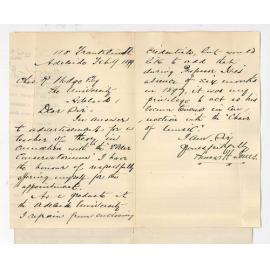 118 Franklin St
Adelaide Feb 9 1899
Chas R Hodge Esq
The University
Adelaide
Dear Sir,
In answer
to advertisement for a
teacher of Theory in
connection with the "Elder
Conservatorium" I have
the honour of respectfully
offering myself for the
appointment.
As a graduate of the
Adelaide University
I refrain from enclosing
credentials, but would
like to add that
during Professor Ives'
absence of six months
in 1897, it was my
privilege to act as his
locum tenens in con-
nection with the "Chair
of Music".
I am, Sir
Yours faithfully